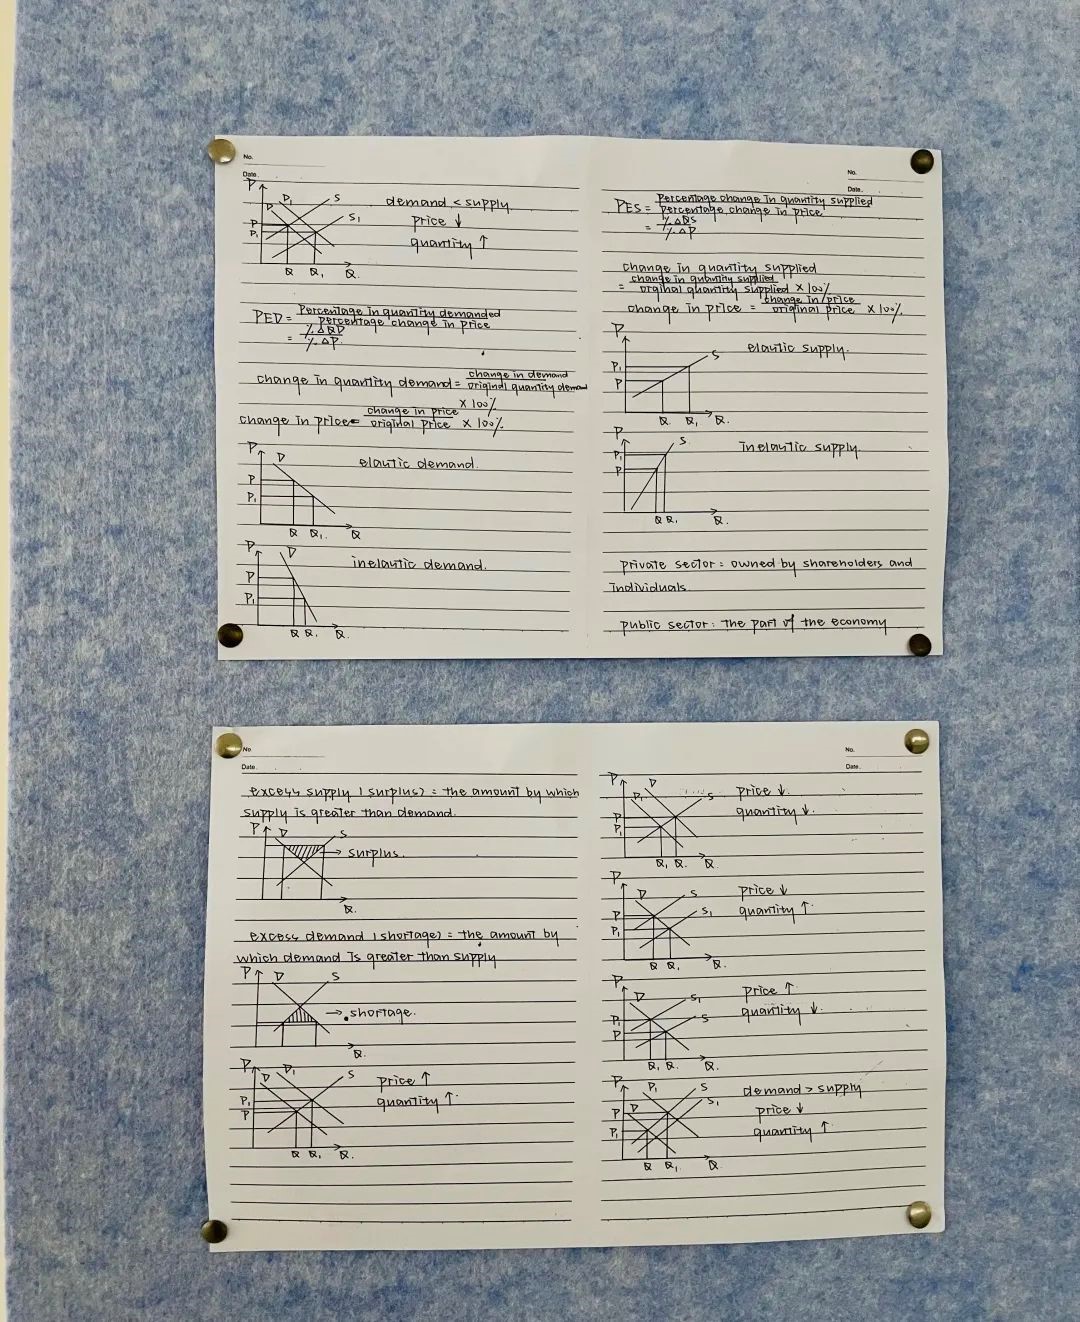 No.
Date.
P
D₁
S
D
S₁
P
P₁
Q Q₁ Q.
demand < supply
price ↓
quantity ↑
PED = Percentage in quantity demanded
percentage change in price
= %ΔQD
%ΔP.
change in quantity demand = change in demand
original quantity demand
× 100%
change in price = change in price
original price × 100%
P
D
P
P₁
Q Q₁. Q
elautic demand.
P
D
P
P₁
Q Q₁. Q.
inelautic demand.
No.
Date.
PES = Percentage change in quantity supplied
percentage change in price
= %ΔQS
%ΔP
change in quantity supplied
= change in quantity supplied
orginal quantity supplied × 100%
change in price = change in price
original price × 100%
P
S
P₁
P
Q. Q₁ Q.
elautic supply.
P
S.
P₁
P
Q Q₁. Q.
inelautic supply.
private sector: owned by shareholders and
individuals.
public sector: the part of the economy
No
Date.
excess supply (surplus) = the amount by which
supply is greater than demand.
P
D
S
→ surplus.
Q.
excess demand (shortage) = the amount by
which demand is greater than supply
P
D
S
→ shortage.
Q.
P
D
D₁
S
P₁
P
Q Q₁ Q.
price ↑
quantity ↑
No.
Date.
P
D
D₁
S
P
P₁
Q₁ Q. Q
price ↓.
quantity ↓.
P
D
S
S₁
P
P₁
Q Q₁ Q.
price ↓
quantity ↑
P
D
S₁
S
P₁
P
Q₁ Q. Q.
price ↑
quantity ↓.
P
P₁
S
D
S₁
P
P₁
Q Q₁. Q.
demand > supply
price ↓
quantity ↑